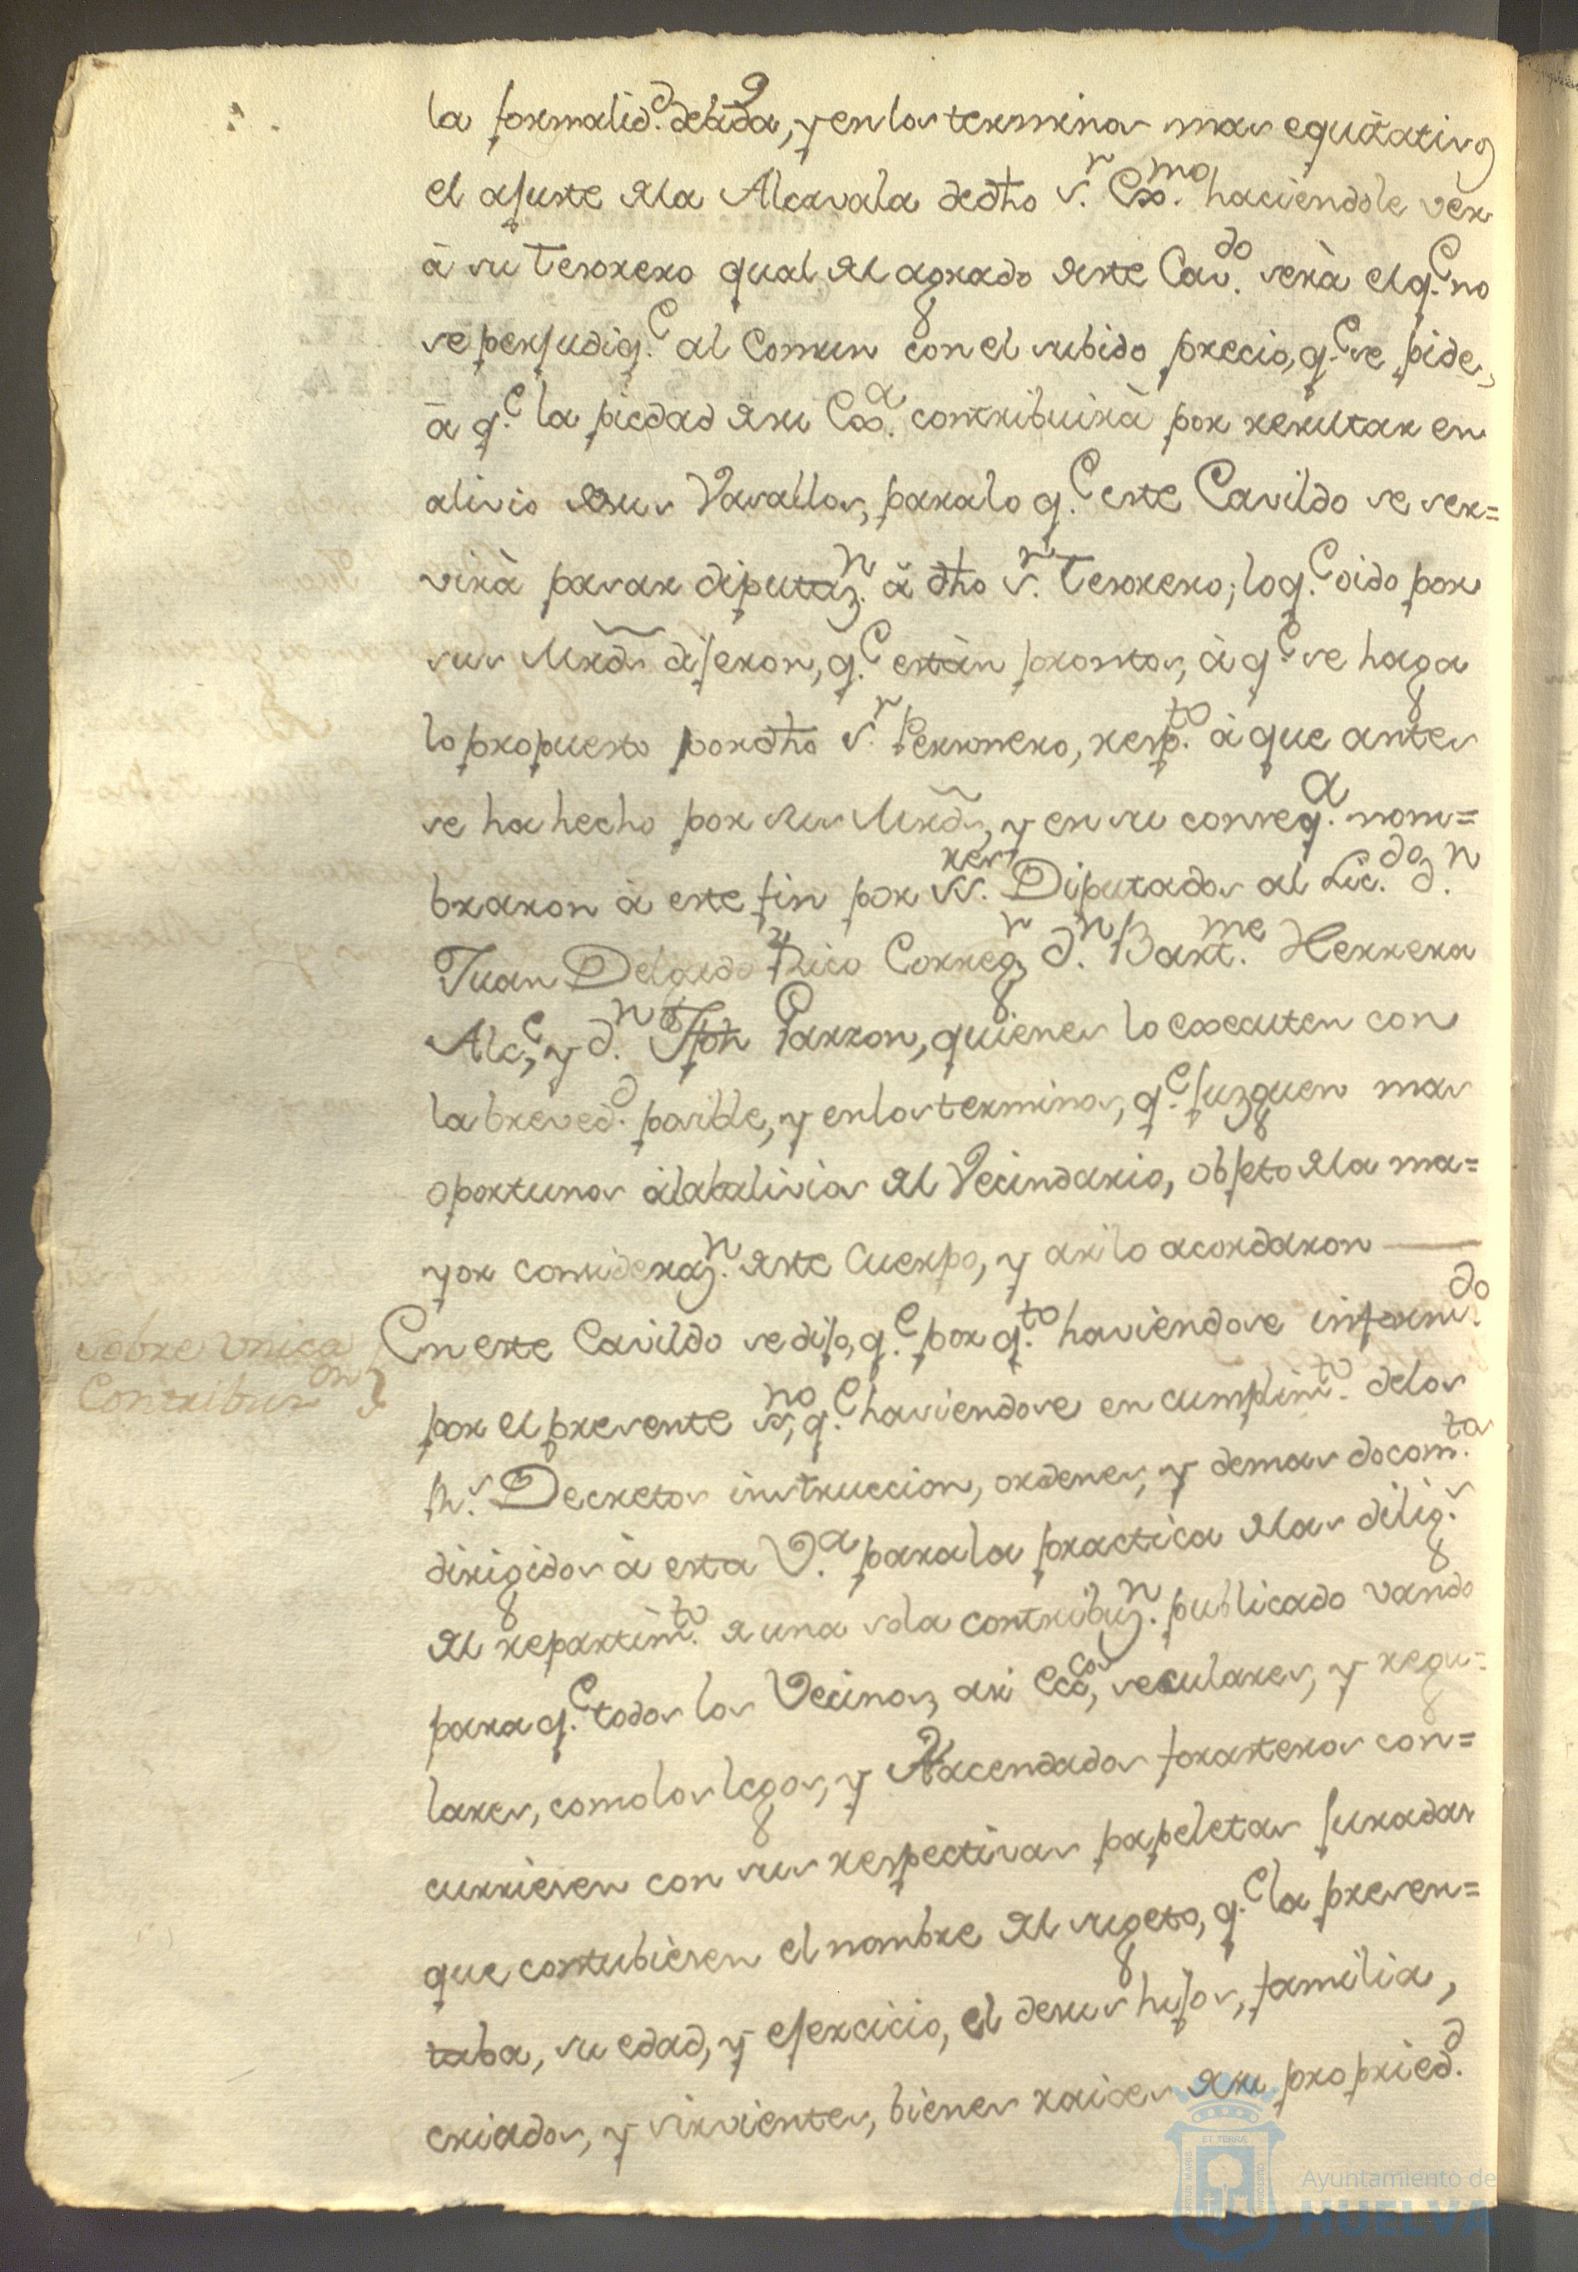 la formalid.d debida, y en los terminos mas equitativos
el ajuste dela Alcavala de dho S.r Exmo. haciendole ver
à su Tesorero qual del agrado deste Cav.do serà el q.e no
se perjudiq.e al Comun con el subido precio, q.e se pide,
à q.e la piedad desu Exa. contribuirà por resultar en
alivio desus Vasallos, para lo q.e este Cavildo se ser=
virà pasar diputaz.n à dho S.r Tesorero; lo q.e oido por
sus Mrds dijeron, q.e estàn prontos, à q.e se haga
lo propuesto por dho S.r Personero, resp.to à que antes
se ha hecho por sus Mrds, y en su conseq.a nom=
braron à este fin por SS.res Diputados al Lic.do d.n
Juan Delgado Rico Correg.r d.n Bart.me Herrera
Alc.e, y d.n Jph Garzon, quienes lo executen con
la breved.d posible, y en los terminos, q.e juzguen mas
oportunos àlabalivios del Vecindario, objeto dela ma=
yor consideraz.n deste Cuerpo, y asi lo acordaron
Sobre Unica
Contribuz.on
En este Cavildo se dijo, q.e por q.to haviendose inform.do
por el presente ss.no, q.e haviendose en cumplim.to delos
Rs. Decretos instruccion, ordenes, y demas docom.tos
dirigidos à esta V.a para la practica delas dilig.s
del repartim.to de una sola contribuz.n publicado vando
para q.e todos los Vecinos, asi Ecc.cos, seculares, y regu=
lares, como los legos, y Hacendados forasteros con=
curriesen con sus respectivas papeletas juradas
que contubiesen el nombre del sugeto, q.e la presen=
taba, su edad, y ejercicio, el desus hijos, familia,
criados, y sirvientes, bienes raices desu propried.d
Ayuntamiento de
HUELVA